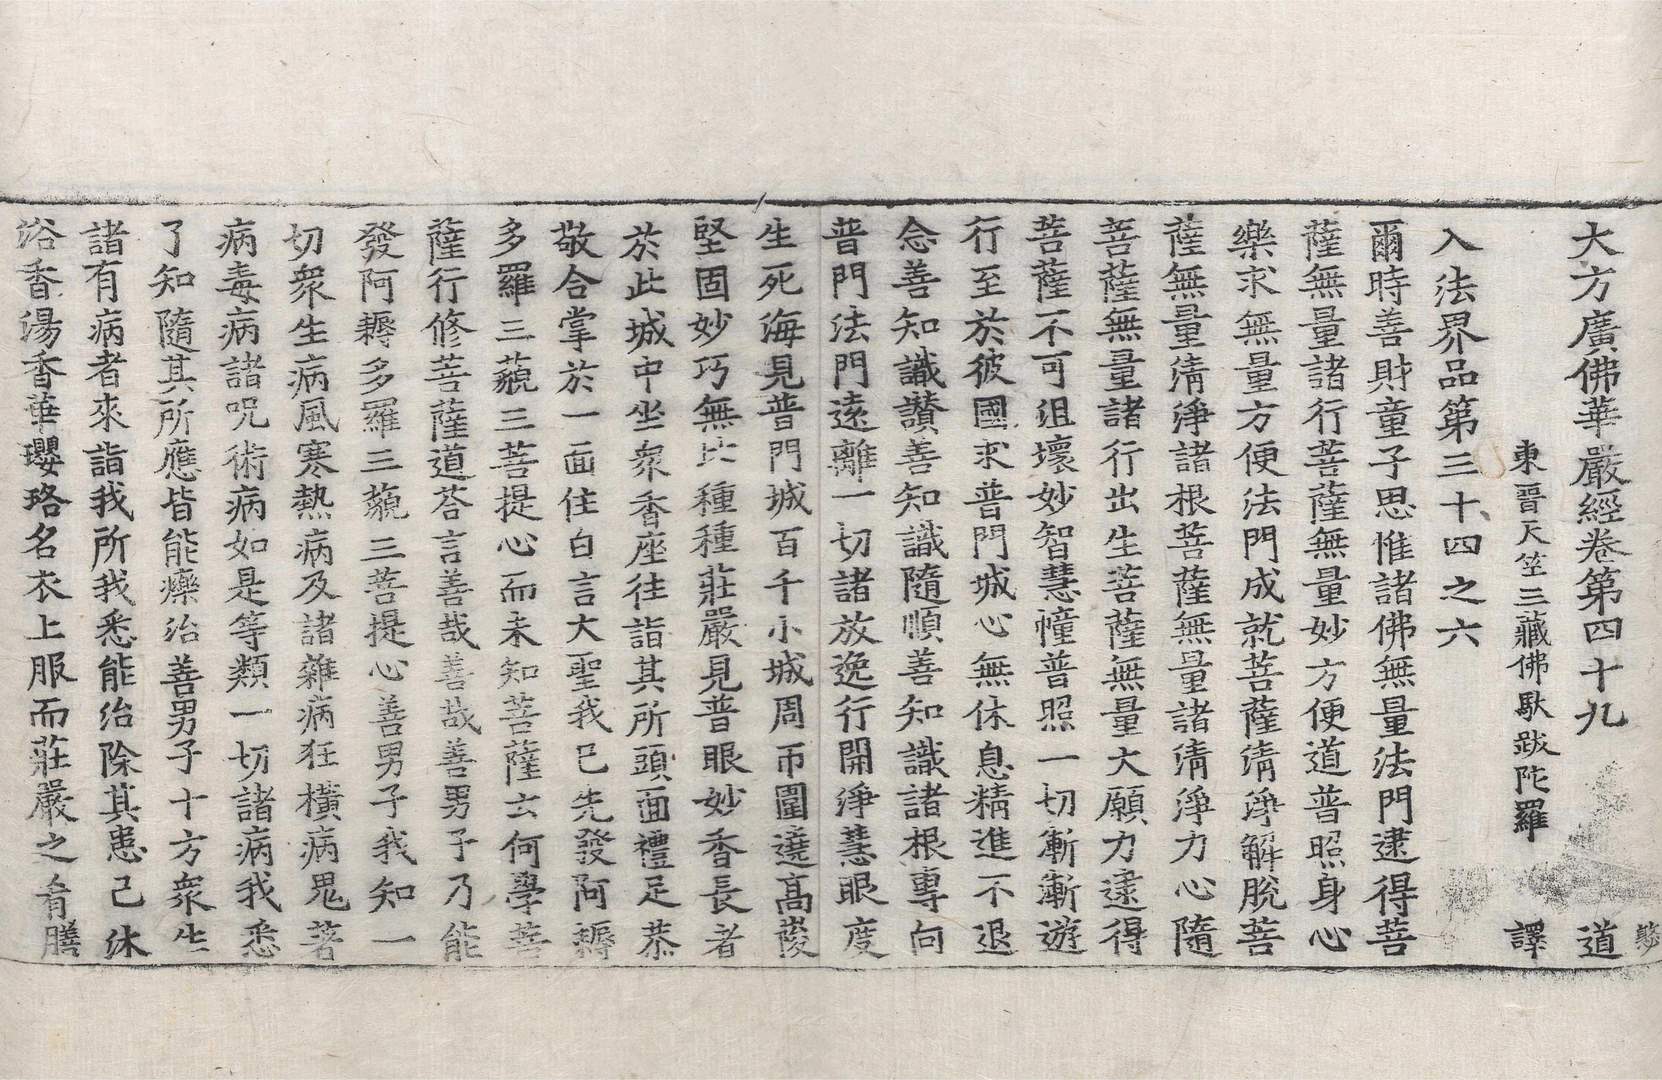 大方廣佛華嚴經卷第四十九　道
東晉天竺三藏佛馱跋陀羅　譯
入法界品第三十四之六
爾時善財童子思惟諸佛無量法門逮得菩
薩無量諸行菩薩無量妙方便道普照身心
樂求無量方便法門成就菩薩清淨解脫菩
薩無量清淨諸根菩薩無量諸清淨力心隨
菩薩無量諸行出生菩薩無量大願力逮得
菩薩不可沮壞妙智慧幢普照一切漸漸遊
行至於彼國求普門城心無休息精進不退
念善知識讚善知識隨順善知識諸根專向
普門法門遠離一切諸放逸行開淨慧眼度
生死海見普門城百千小城周帀圍遶高峻
堅固妙巧無比種種莊嚴見普眼妙香長者
於此城中坐衆香座往詣其所頭面禮足恭
敬合掌於一面住白言大聖我已先發阿耨
多羅三藐三菩提心而未知菩薩云何學菩
薩行修菩薩道荅言善哉善哉善男子乃能
發阿耨多羅三藐三菩提心善男子我知一
切衆生病風寒熱病及諸雜病狂橫病鬼著
病毒病諸呪術病如是等類一切諸病我悉
了知隨其所應皆能療治善男子十方衆生
諸有病者來詣我所我悉能治除其患已沐
浴香湯香華瓔珞名衣上服而莊嚴之肴膳